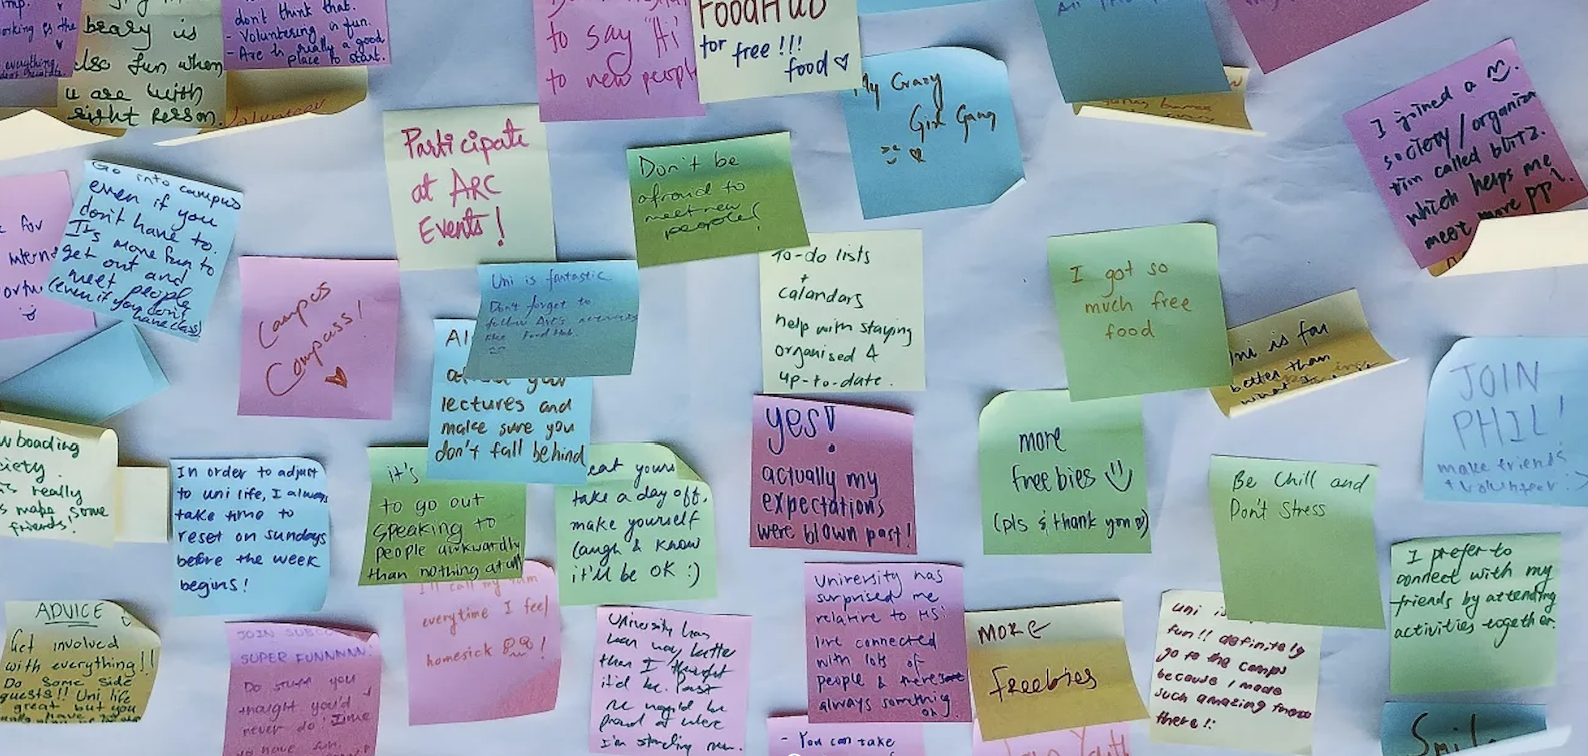 beary is
also fun when
u are with
right person.
don't think that.
- Volunteering is fun.
- Arc is really a good
place to start.
to say "Hi"
to new people
FOODHUB
for free!!!
food
My Crazy
Girl Gang
I joined a
society/organiza
tion called blitz.
which helps me
meet more ppl.
Go into campus
even if you
don't have to.
It's more fun to
get out and
meet people
(even if you don't
have class)
Participate
at ARC
Events!
Don't be
afraid to
meet new
people!
Campus
Compass!
Uni is fantastic
Don't forget to
follow Arc's
like Food Hub.
To-do lists
+
calandars
help with staying
organised &
up-to-date.
I got so
much free
food
Uni is far
better than
JOIN
PHIL!
make friends
+ volunteer :)
lectures and
make sure you
don't fall behind
really
make some
friends!
In order to adjust
to uni life, I always
take time to
reset on sundays
before the week
begins!
it's
to go out
speaking to
people awkwardly
than nothing at all
take a day off,
make yourself
laugh & know
it'll be OK :)
yes!
actually my
expectations
were blown past!
more
freebies
(pls & thank you)
Be Chill and
Don't Stress
I prefer to
connect with my
friends by attending
activities together.
ADVICE
Get involved
with everything!!
Do some side
quests!! Uni life
great but you
SUPER FUNNNNN!
Do stuff you
thought you'd
never do.
I'll call my
everytime I feel
homesick
University has
been way better
than I thought
it'd be. Past
me would be
proud of where
I'm standing now.
University has
surprised me
relative to HS:
I've connected
with lots of
people & there's
always something
on.
MORE
freebies
uni is
fun!! definitely
go to the camps
because I made
such amazing
there!!
- You can take
Smile